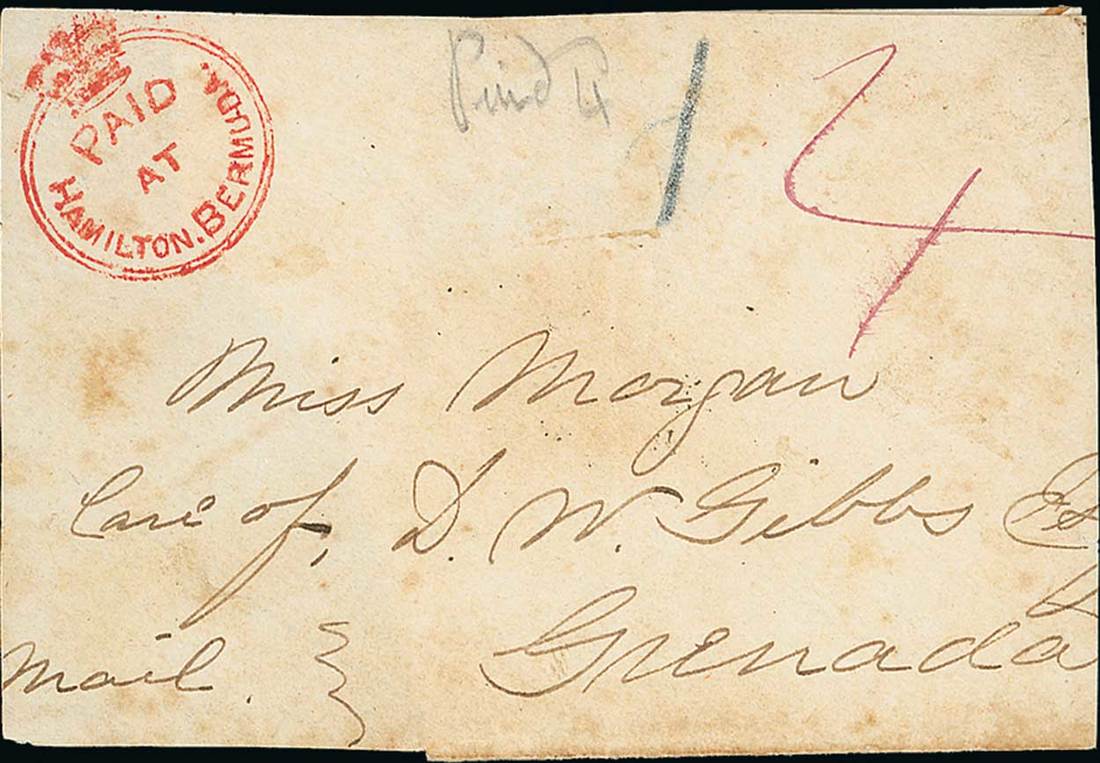 PAID
AT
HAMILTON. BERMUDA.
Paid 4
1
4
Miss Morgan
Care of, D. W. Gibbs Esq
Grenada
Mail.